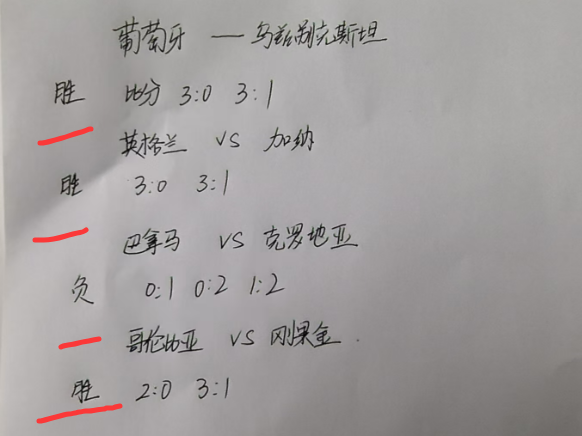 葡萄牙 — 乌兹别克斯坦
胜 比分 3:0 3:1
英格兰 VS 加纳
胜 3:0 3:1
巴拿马 VS 克罗地亚
负 0:1 0:2 1:2
哥伦比亚 VS 刚果金.
胜 2:0 3:1